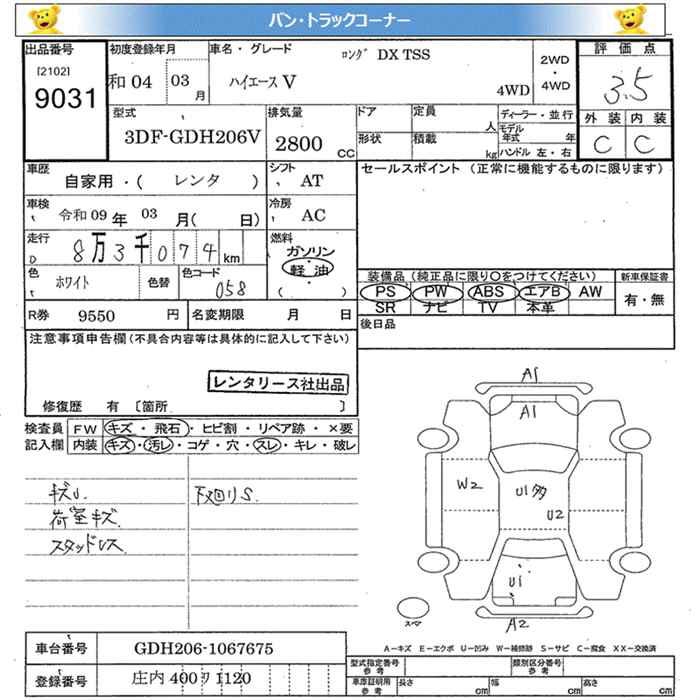 バン・トラックコーナー
出品番号
[2102]
9031
初度登録年月
和04 03月
車名・グレード
ロング DX TSS
ハイエースV
4WD
2WD・4WD
評価点
3.5
外装 内装
C C
型式
3DF-GDH206V
排気量
2800 CC
ドア
定員 人
形状
積載 kg
ディーラー・並行
モデル年式 年
ハンドル 左・右
車歴
自家用・( レンタ )
シフト
AT
車検
令和09年 03月( 日)
冷房
AC
走行
8万3千074km
燃料
ガソリン
軽油
( )
色
ホワイト
色替
色コード
058
R券 9550 円
名変期限 月 日
セールスポイント (正常に機能するものに限ります)
装備品(純正品に限り〇をつけてください)
PS PW ABS エアB AW
SR ナビ TV 本革
新車保証書
有・無
後日品
注意事項申告欄(不具合内容等は具体的に記入して下さい)
レンタリース社出品
修復歴 有 〔箇所 〕
検査員記入欄
FW キズ・飛石・ヒビ割・リペア跡・×要
内装 キズ・汚レ・コゲ・穴・スレ・キレ・破レ
キズU.
荷室キズ.
スタッドレス
下廻りS.
A1
A1
W2
U1多
U2
U1
A2
スペア
A-キズ E-エクボ U-凹み W-補修跡 S-サビ C-腐食 XX-交換済
車台番号 GDH206-1067675
登録番号 庄内 400 ワ 1120
型式指定番号 参考
類別区分番号 参考
車庫証明用 参考
長さ cm 幅 cm 高さ cm